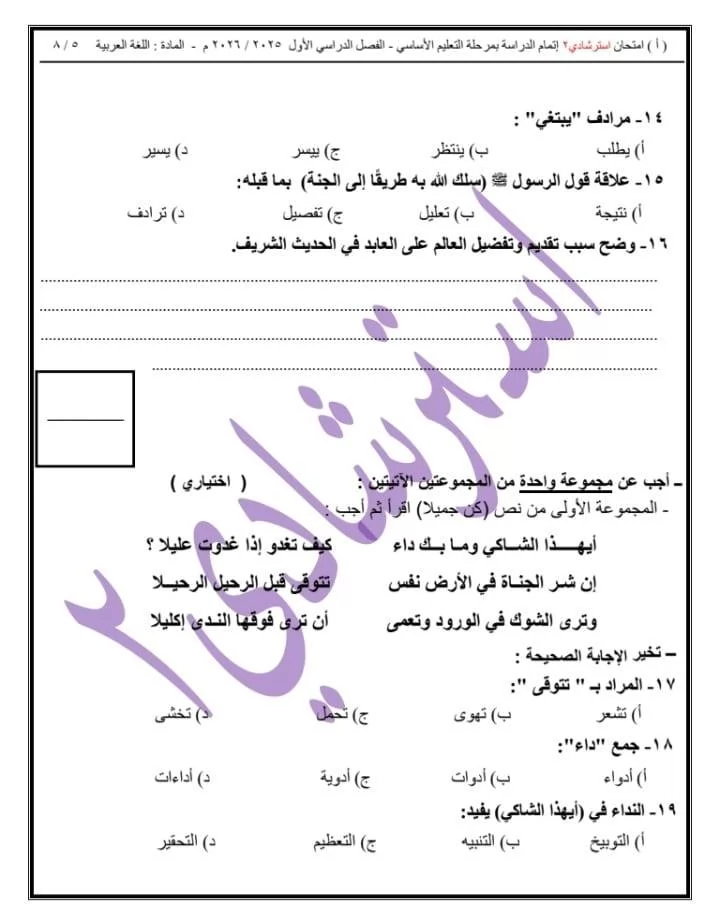 ( أ ) امتحان استرشادي٢ إتمام الدراسة بمرحلة التعليم الأساسي - الفصل الدراسي الأول ٢٠٢٥ / ٢٠٢٦ م - المادة : اللغة العربية ٥ / ٨
١٤- مرادف "يبتغي" :
أ) يطلب ب) ينتظر ج) ييسر د) يسير
١٥- علاقة قول الرسول ﷺ (سلك الله به طريقًا إلى الجنة) بما قبله:
أ) نتيجة ب) تعليل ج) تفصيل د) ترادف
١٦- وضح سبب تقديم وتفضيل العالم على العابد في الحديث الشريف.
ـ أجب عن مجموعة واحدة من المجموعتين الآتيتين : ( اختياري )
- المجموعة الأولى من نص (كن جميلا) اقرأ ثم أجب :
أيهــــذا الشــاكي ومـا بــك داء كيف تغدو إذا غدوت عليلا ؟
إن شـر الجنـاة في الأرض نفس تتوقى قبل الرحيل الرحيــلا
وترى الشوك في الورود وتعمى أن ترى فوقها الندى إكليلا
– تخير الإجابة الصحيحة :
١٧- المراد بـ " تتوقى ":
أ) تشعر ب) تهوى ج) تحمل د) تخشى
١٨- جمع "داء":
أ) أدواء ب) أدوات ج) أدوية د) أداءات
١٩- النداء في (أيهذا الشاكي) يفيد:
أ) التوبيخ ب) التنبيه ج) التعظيم د) التحقير
استرشادي ٢